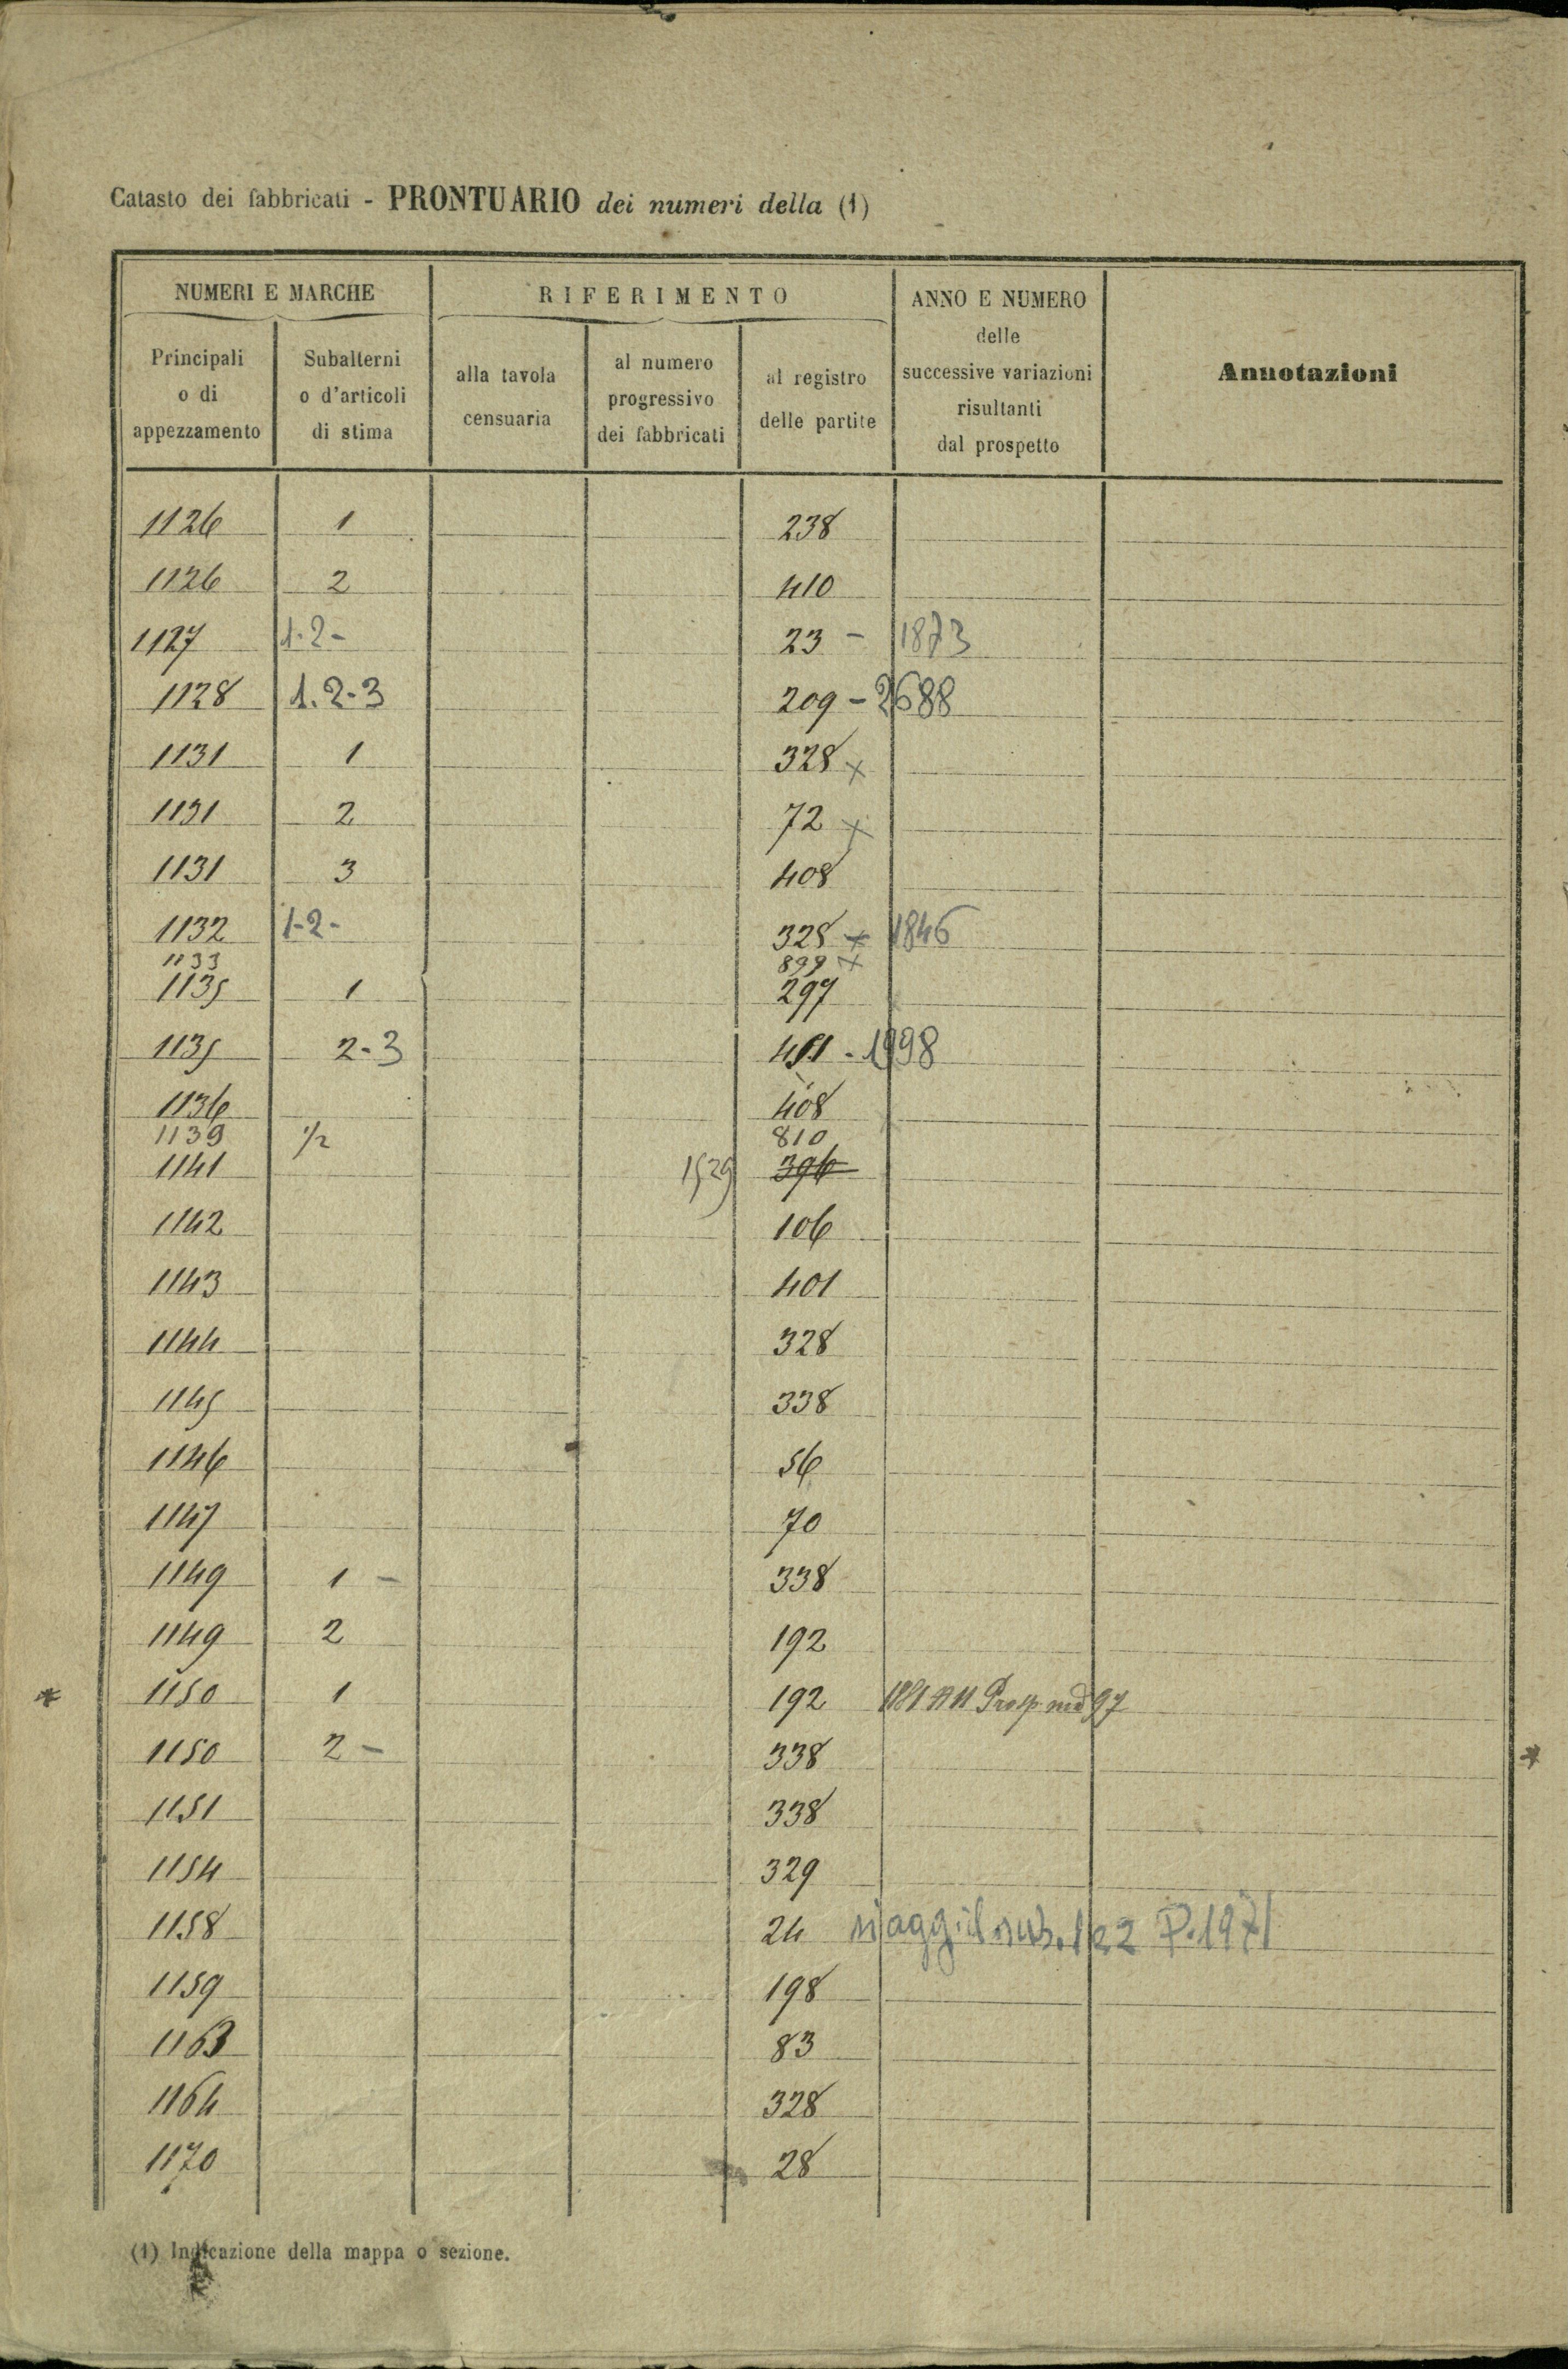 Catasto dei fabbricati - PRONTUARIO dei numeri della (1)
NUMERI E MARCHE
RIFERIMENTO
ANNO E NUMERO
delle
successive variazioni
risultanti
dal prospetto
Annotazioni
Principali
o di
appezzamento
Subalterni
o d'articoli
di stima
alla tavola
censuaria
al numero
progressivo
dei fabbricati
al registro
delle partite
1126 1 238
1126 2 410
1127 1-2- 23 - 1873
1128 1.2-3 209 - 2688
1131 1 328 x
1131 2 72 x
1131 3 408
1132 1-2- 328 x 1846
1133 899 x
1135 1 297
1135 2-3 - 1998
1136 408
1139 1/2 810
1141 1529 396
1142 106
1143 401
1144 328
1145 338
1146 56
1147 70
1149 1 - 338
1149 2 192
* 1150 1 192 Prosp. 97
1150 2 - 338 *
1151 338
1154 329
1158 24 sub. 1 e 2 P. 1971
1159 198
1163 83
1164 328
1170 28
(1) Indicazione della mappa o sezione.